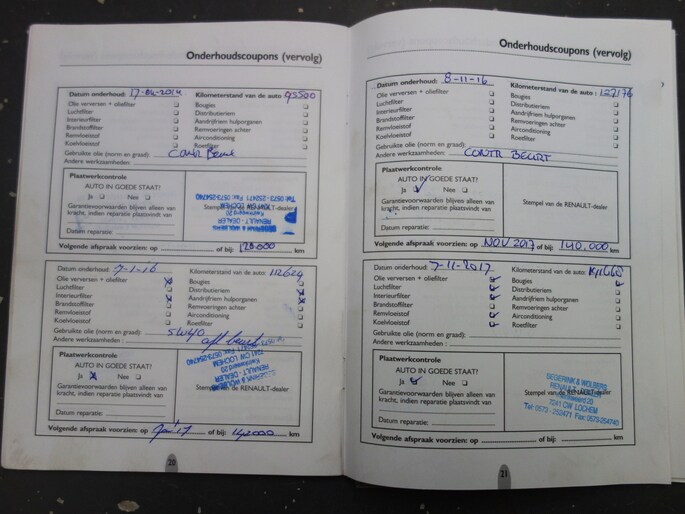 Onderhoudscoupons (vervolg)
Datum onderhoud: Kilometerstand van de auto:
Olie verversen + oliefilter Bougies
Luchtfilter Distributieriem
Interieurfilter Aandrijfriem hulporganen
Brandstoffilter Remvoeringen achter
Remvloeistof Airconditioning
Koelvloeistof Roetfilter
Gebruikte olie (norm en graad):
Andere werkzaamheden: Contr Beurt
Plaatwerkcontrole
AUTO IN GOEDE STAAT?
Ja Nee
Garantievoorwaarden blijven alleen van
kracht, indien reparatie plaatsvindt van
Datum reparatie:
Stempel van de RENAULT-dealer
RENAULT - DEALER
7241 CW LOCHEM
Tel. 0573-252471 Fax 0573-254740
Volgende afspraak voorzien: op of bij: 120.000 km
Datum onderhoud: 7-1-16 Kilometerstand van de auto: 112624
Olie verversen + oliefilter Bougies
Luchtfilter Distributieriem
Interieurfilter Aandrijfriem hulporganen
Brandstoffilter Remvoeringen achter
Remvloeistof Airconditioning
Koelvloeistof Roetfilter
Gebruikte olie (norm en graad): 5W40
Andere werkzaamheden:
Plaatwerkcontrole
AUTO IN GOEDE STAAT?
Ja Nee
Garantievoorwaarden blijven alleen van
kracht, indien reparatie plaatsvindt van
Datum reparatie:
Stempel van de RENAULT-dealer
RENAULT - DEALER
7241 CW LOCHEM
Fax 0573-254740
Volgende afspraak voorzien: op of bij: km
20
Onderhoudscoupons (vervolg)
Datum onderhoud: 8-11-16 Kilometerstand van de auto: 127176
Olie verversen + oliefilter Bougies
Luchtfilter Distributieriem
Interieurfilter Aandrijfriem hulporganen
Brandstoffilter Remvoeringen achter
Remvloeistof Airconditioning
Koelvloeistof Roetfilter
Gebruikte olie (norm en graad):
Andere werkzaamheden: CONTR BEURT
Plaatwerkcontrole
AUTO IN GOEDE STAAT?
Ja Nee
Garantievoorwaarden blijven alleen van
kracht, indien reparatie plaatsvindt van
Datum reparatie:
Stempel van de RENAULT-dealer
Volgende afspraak voorzien: op NOV 2017 of bij: 140.000 km
Datum onderhoud: 7-11-2017 Kilometerstand van de auto:
Olie verversen + oliefilter Bougies
Luchtfilter Distributieriem
Interieurfilter Aandrijfriem hulporganen
Brandstoffilter Remvoeringen achter
Remvloeistof Airconditioning
Koelvloeistof Roetfilter
Gebruikte olie (norm en graad):
Andere werkzaamheden:
Plaatwerkcontrole
AUTO IN GOEDE STAAT?
Ja Nee
Garantievoorwaarden blijven alleen van
kracht, indien reparatie plaatsvindt van
Datum reparatie:
Stempel van de RENAULT-dealer
SEGERINK & WOLBERG
7241 CW LOCHEM
Tel 0573 - 252471 Fax: 0573-254740
Volgende afspraak voorzien: op of bij: km
21